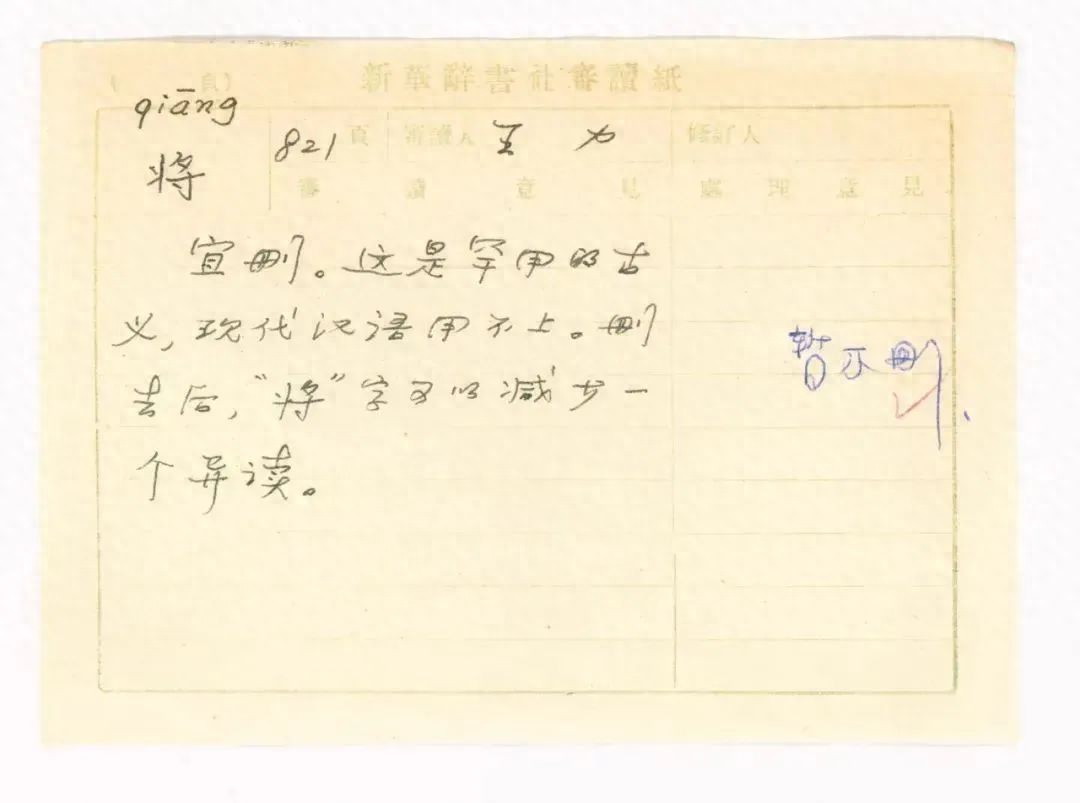 新華辭書社審讀紙
頁)
qiāng
将
821 頁 審讀人 王力 修訂人
審 讀 意 見 處 理 意 見
宜删。这是罕用的古
义,现代汉语用不上。删
去后,“将”字可以减少一
个异读。
暂不删